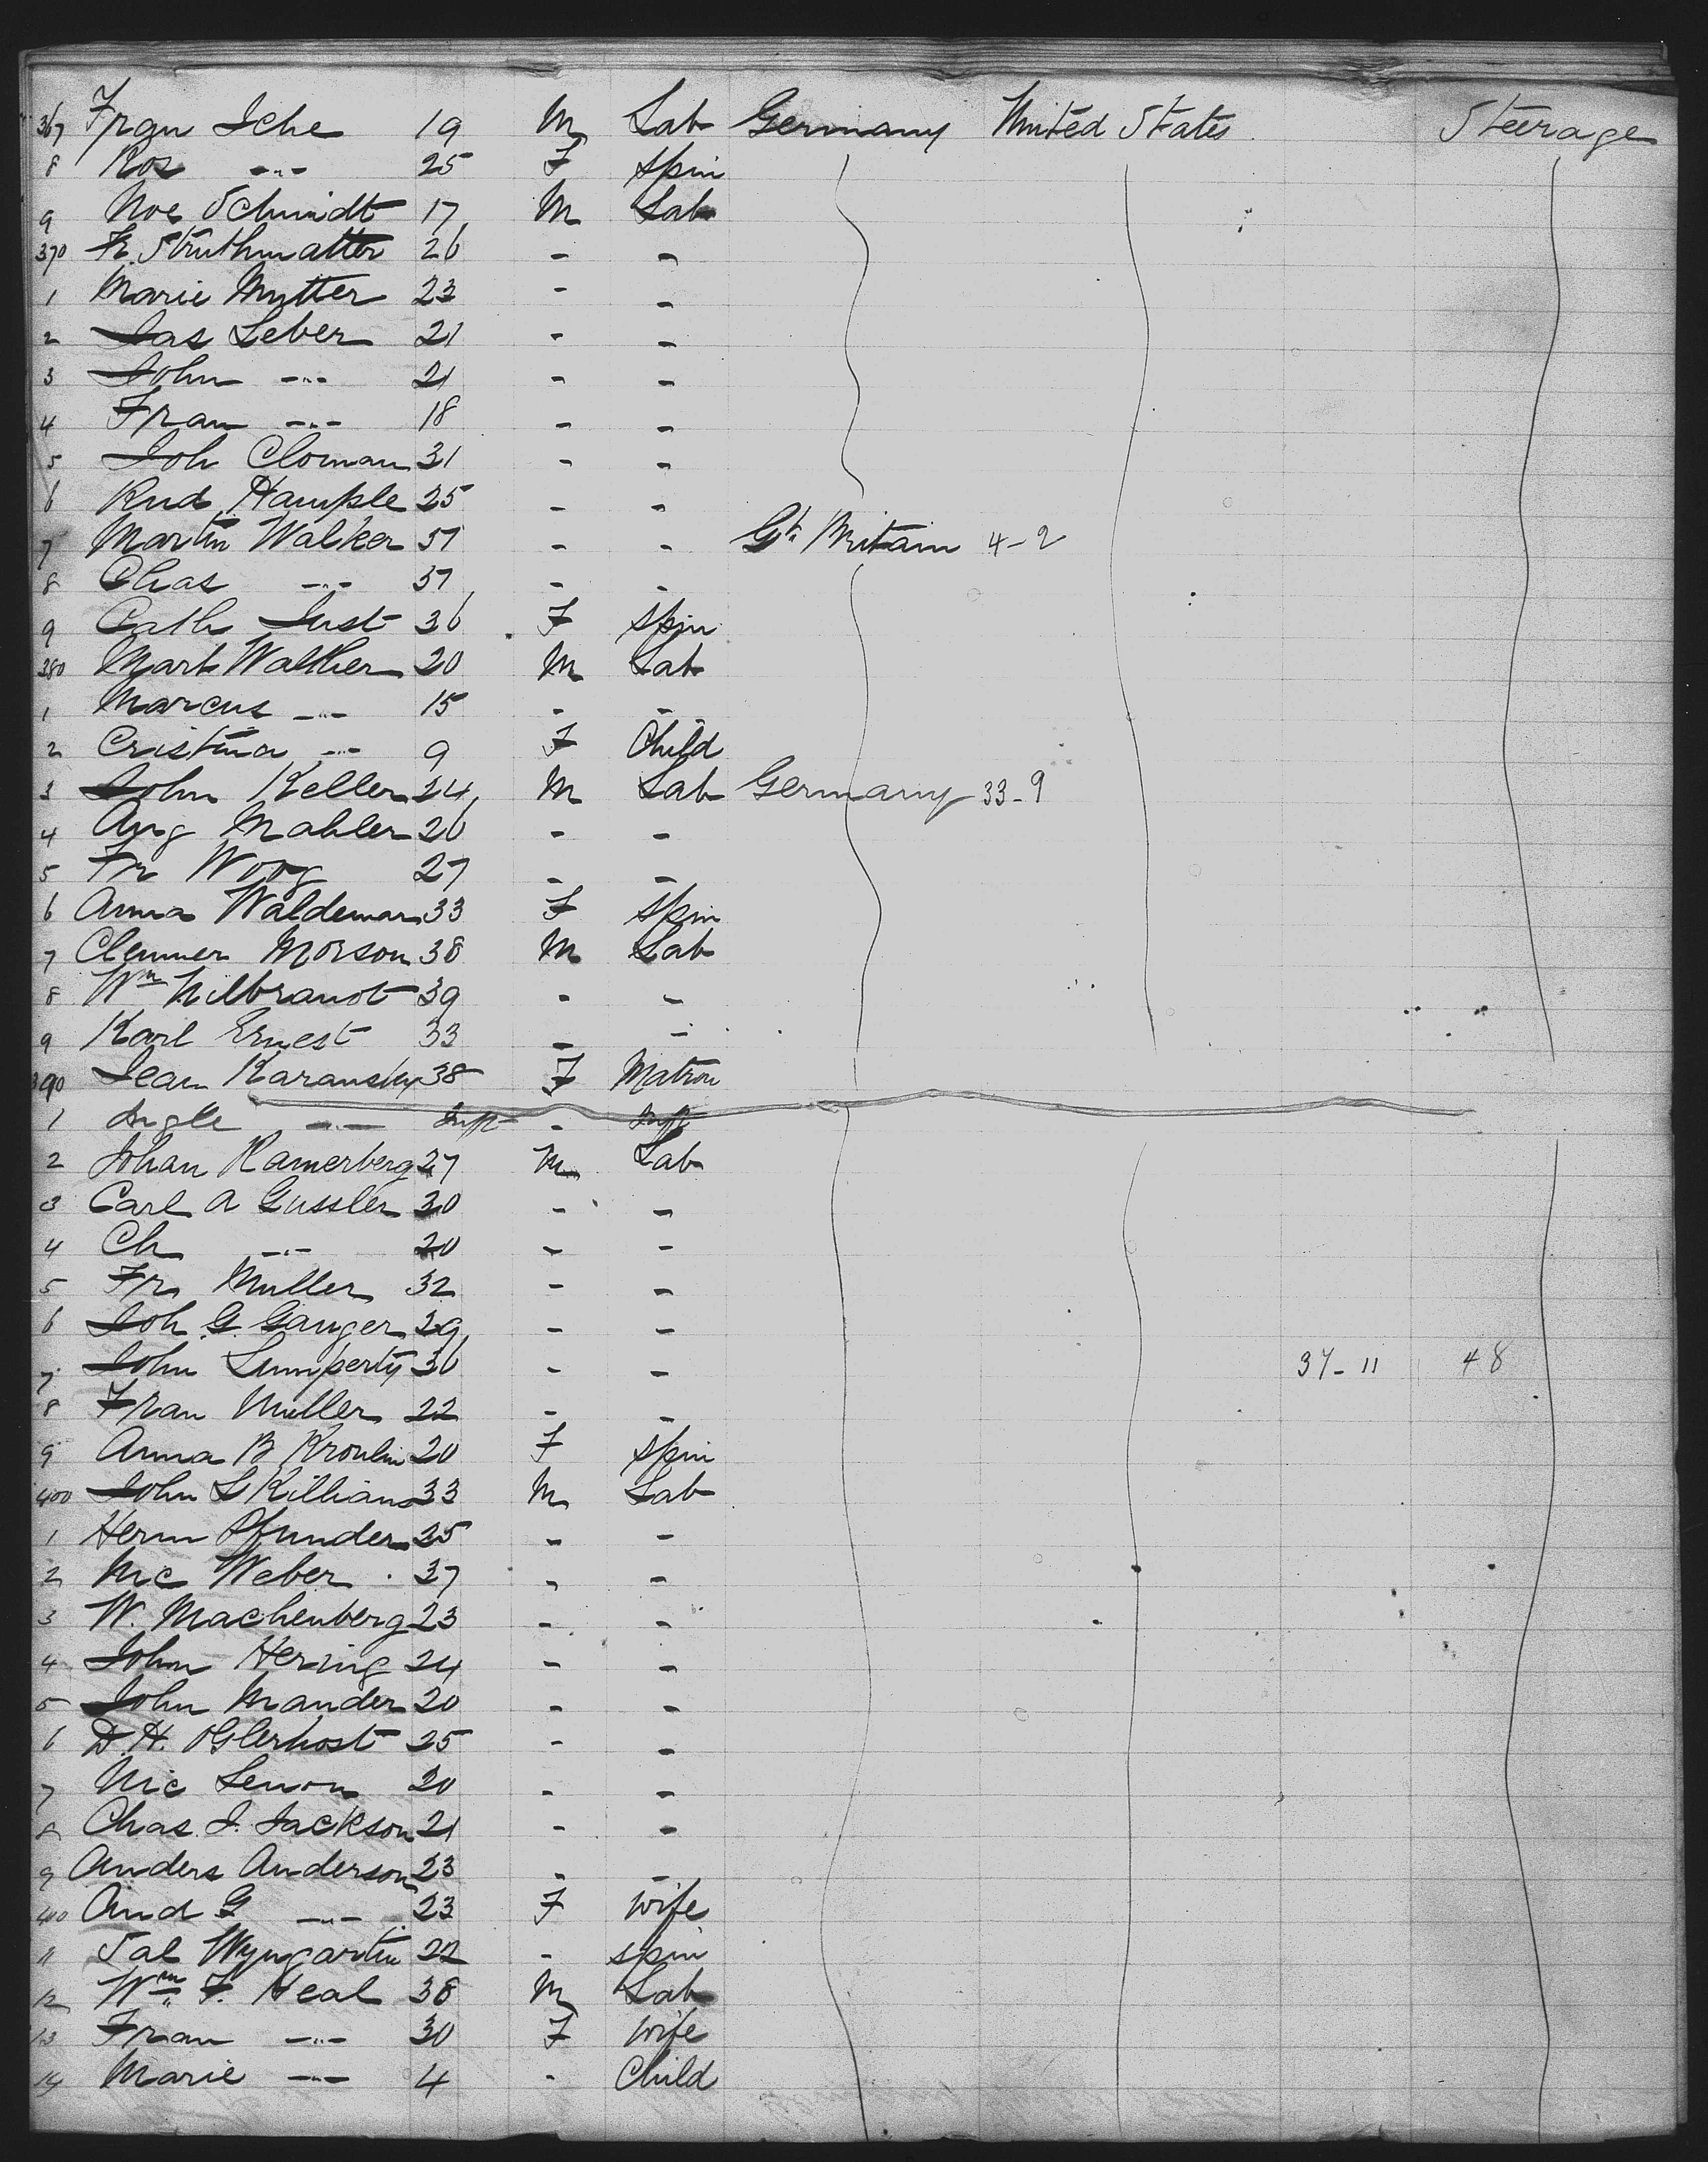 367 Fran Iche 19 M Lab Germany United States Steerage
8 Ros -"- 25 F Spin
9 Noe Schmidt 17 M Lab
370 K. Struthmatter 26 - -
1 Marie Mutter 23 - -
2 Jas Leber 21 - -
3 John -"- 21 - -
4 Fran -"- 18 - -
5 Joh Cloman 31 - -
6 Rud Hample 25 - -
7 Martin Walker 37 - - Gt Britain 4-2
8 Chas -"- 37 - -
9 Cath Just 36 F Spin
380 Mart Walther 20 M Lab
1 Marcus -"- 15 - -
2 Cristina -"- 9 F Child
3 John Keller 24 M Lab Germany 33-9
4 Aug Mahler 26 - -
5 Fr Woog 27 - -
6 Anna Waldeman 33 F Spin
7 Clemmer Morson 38 M Lab
8 Wm Hilbrandt 39 - -
9 Karl Ernest 33 - -
390 Jean Karansky 38 F Matron
1 Angle -"- Inft - Inft
2 Johan Ramerberg 27 M Lab
3 Carl A Gussler 30 - -
4 Ch -"- 20 - -
5 Fr Muller 32 - -
6 Joh G. Ganger 29 - -
7 John Lumperty 36 - - 37-11 48
8 Fran Muller 22 - -
9 Anna B Kronlin 20 F Spin
400 John L Killian 33 M Lab
1 Herm Pfunder 25 - -
2 Nic Weber 37 - -
3 W. Machenberg 23 - -
4 John Hering 24 - -
5 John Mander 20 - -
6 D.H. Oglerhost 25 - -
7 Nic Lenon 20 - -
8 Chas. J. Jackson 21 - -
9 Anders Anderson 23 - -
410 And G -"- 23 F wife
11 Sal Wyngartin 22 - Spin
12 Wm F. Heal 38 M Lab
13 Fran -"- 30 F wife
14 Marie -"- 4 - Child